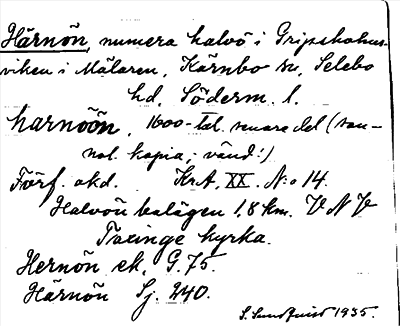 Härnön, numera halvö i Gripsholms-
viken i Mälaren, Kärnbo sn, Selebo
hd, Söderm. l.
harnöön, 1600-tal. senare del (san-
nol. kopia; vänd!)
Förf. okd. KrA, XX. N:o 14.
Halvön belägen 1,8 km. VNV
Taxinge kyrka.
Hernön ek. G. 75.
Härnön Sj. 240.
S. Sundquist 1935.